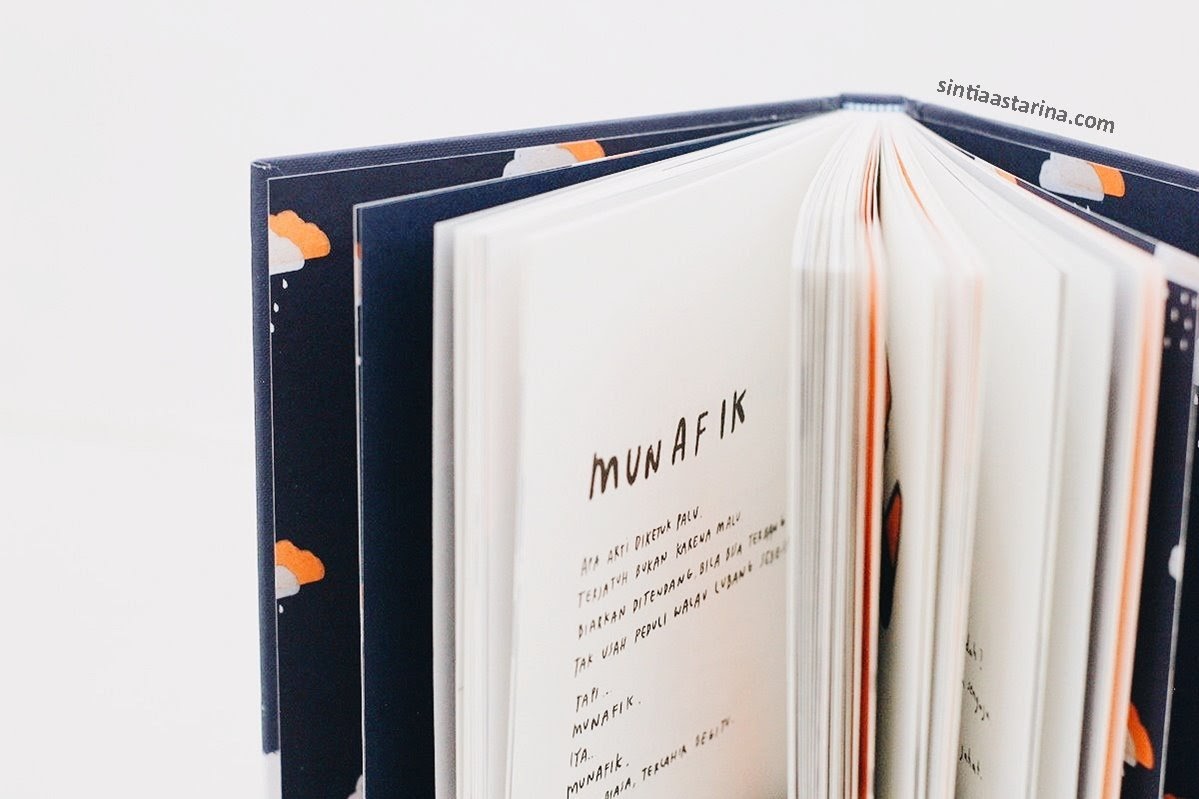 sintiaastarina.com
MUNAFIK
APA ARTI DIKETUK PALU.
TERJATUH BUKAN KARENA MALU
BIARKAN DITENDANG, BILA BISA TERBANG
TAK USAH PEDULI WALAU LUBANG
TAPI...
MUNAFIK.
IYA..
MUNAFIK.
BIASA, TERLAHIR BEGITU.